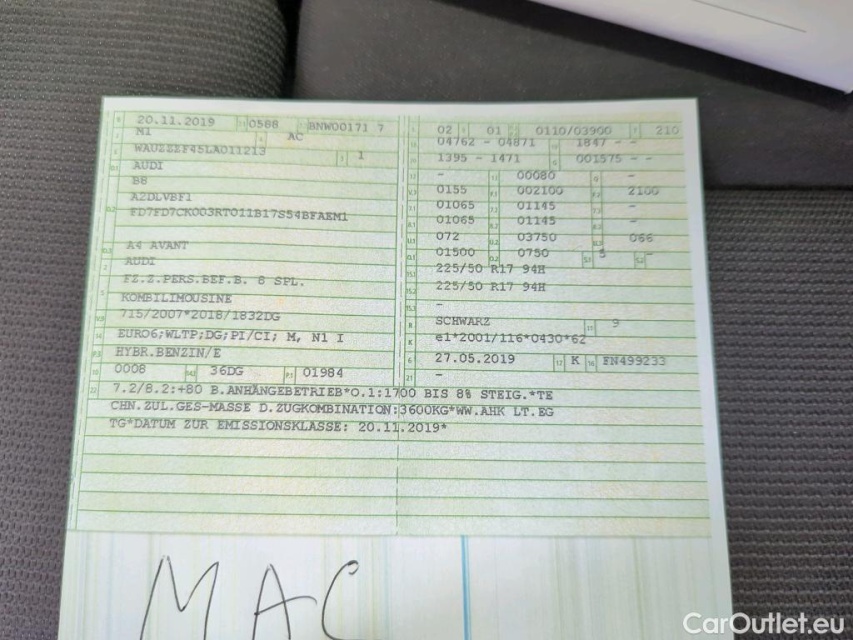 20.11.2019 0588 BNW00171 7
M1 AC
WAUZZZF45LA011213 1
AUDI
B8
A2DLVBF1
FD7FD7CK003RTO11B17S54BFAEM1
A4 AVANT
AUDI
FZ.Z.PERS.BEF.B. 8 SPL.
KOMBILIMOUSINE
715/2007*2018/1832DG
EURO6;WLTP;DG;PI/CI; M, N1 I
HYBR.BENZIN/E
0008 36DG 01984
02 01 0110/03900 210
04762 - 04871 1847 - -
1395 - 1471 001575 - -
- 00080 -
0155 002100 2100
01065 01145 -
01065 01145 -
072 03750 066
01500 0750 5 -
225/50 R17 94H
225/50 R17 94H
-
SCHWARZ 9
e1*2001/116*0430*62
27.05.2019 K FN499233
-
7.2/8.2:+80 B.ANHÄNGEBETRIEB*O.1:1700 BIS 8% STEIG.*TE
CHN.ZUL.GES-MASSE D.ZUGKOMBINATION:3600KG*WW.AHK LT.EG
TG*DATUM ZUR EMISSIONSKLASSE: 20.11.2019*
MAC
CarOutlet.eu